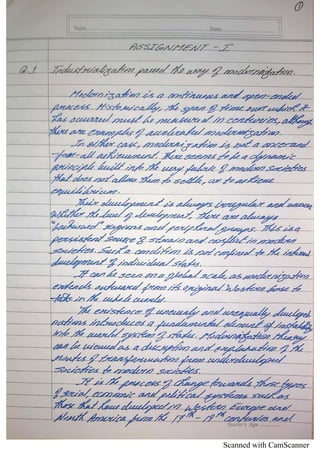 ①
Topic
Date
ASSIGNMENT - I
Q.1 Industrialization paved the way of modernization.
Modernization is a continuous and open-ended
process. Historically, the span of time over which it
has occurred must be measured in centuries, although
there are examples of accelerated modernization.
In either case, modernization is not a once-and
-for-all achievement. There seems to be a dynamic
principle built into the very fabric of modern societies
that does not allow them to settle, or to achieve
equilibrium.
Their development is always irregular and uneven
whatever the level of development, there are always
"backward" regions and peripheral groups. This is a
persistent source of strain and conflict in modern
societies. Such a condition is not confined to the internal
development of individual states.
It can be seen on a global scale, as modernization
extends outward from its original Western base to
take in the whole world.
The existence of unevenly and unequally developed
nations introduces a fundamental element of instability
into the world system of states. Modernization theory
can be viewed as a description and explanation of the
routes of transformation from underdeveloped
societies to modern societies.
It is the process of change towards those types
of social, economic and political systems such as
those that have developed in Western Europe and
North America from the 17th - 19th centuries and
Teacher's Sign
Scanned with CamScanner